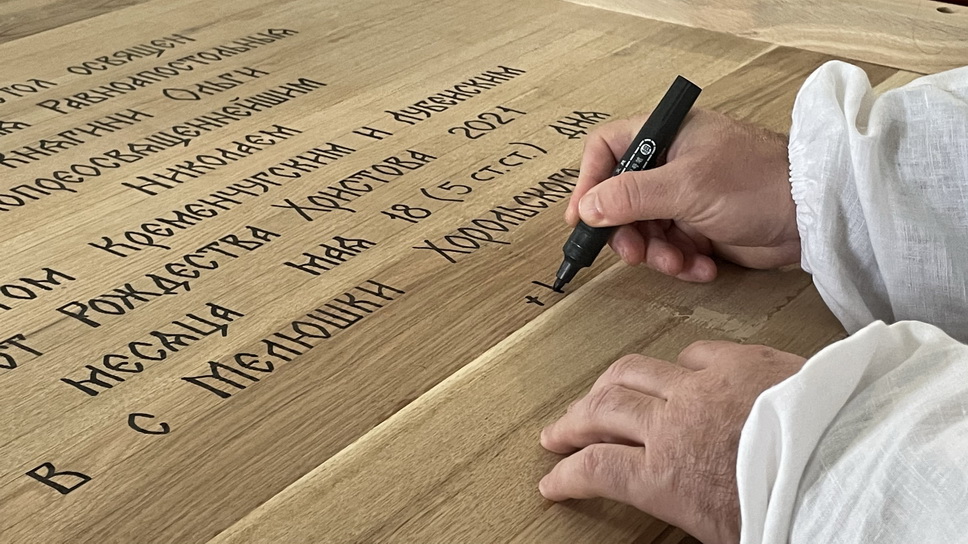 стол освящен
Равноапостольныя
княгини Ольги
опреосвященнейшим
Николаем
том Кременчугским и Лубенским
от Рождества Христова 2021
месяца мая 18 (5 ст.ст.) дня
в с Мелюшки Хорольского
+